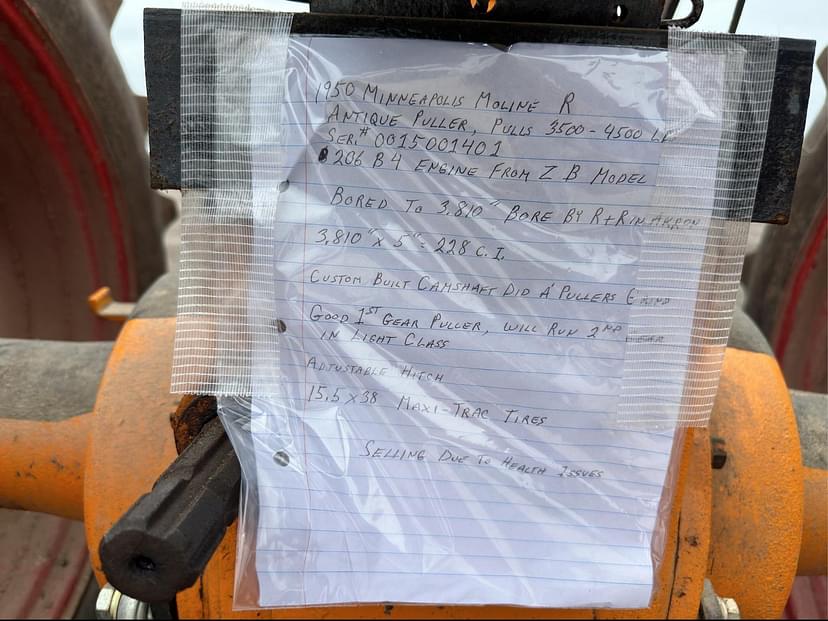 1950 MINNEAPOLIS MOLINE R
ANTIQUE PULLER, PULLS 3500-4500 LB
SER.# 0015001401
206 B 4 ENGINE FROM Z B MODEL
BORED TO 3.810" BORE BY R+R IN AKRON
3.810" X 5" = 228 C.I.
CUSTOM BUILT CAMSHAFT DID A PULLERS GRIND
GOOD 1ST GEAR PULLER, WILL RUN 2ND
IN LIGHT CLASS
ADJUSTABLE HITCH
15.5 X 38 MAXI-TRAC TIRES
SELLING DUE TO HEALTH ISSUES